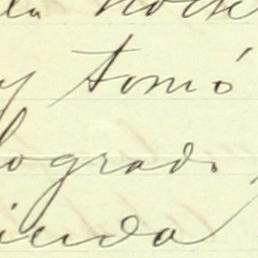 la noche
y tomó
logrado
ienda